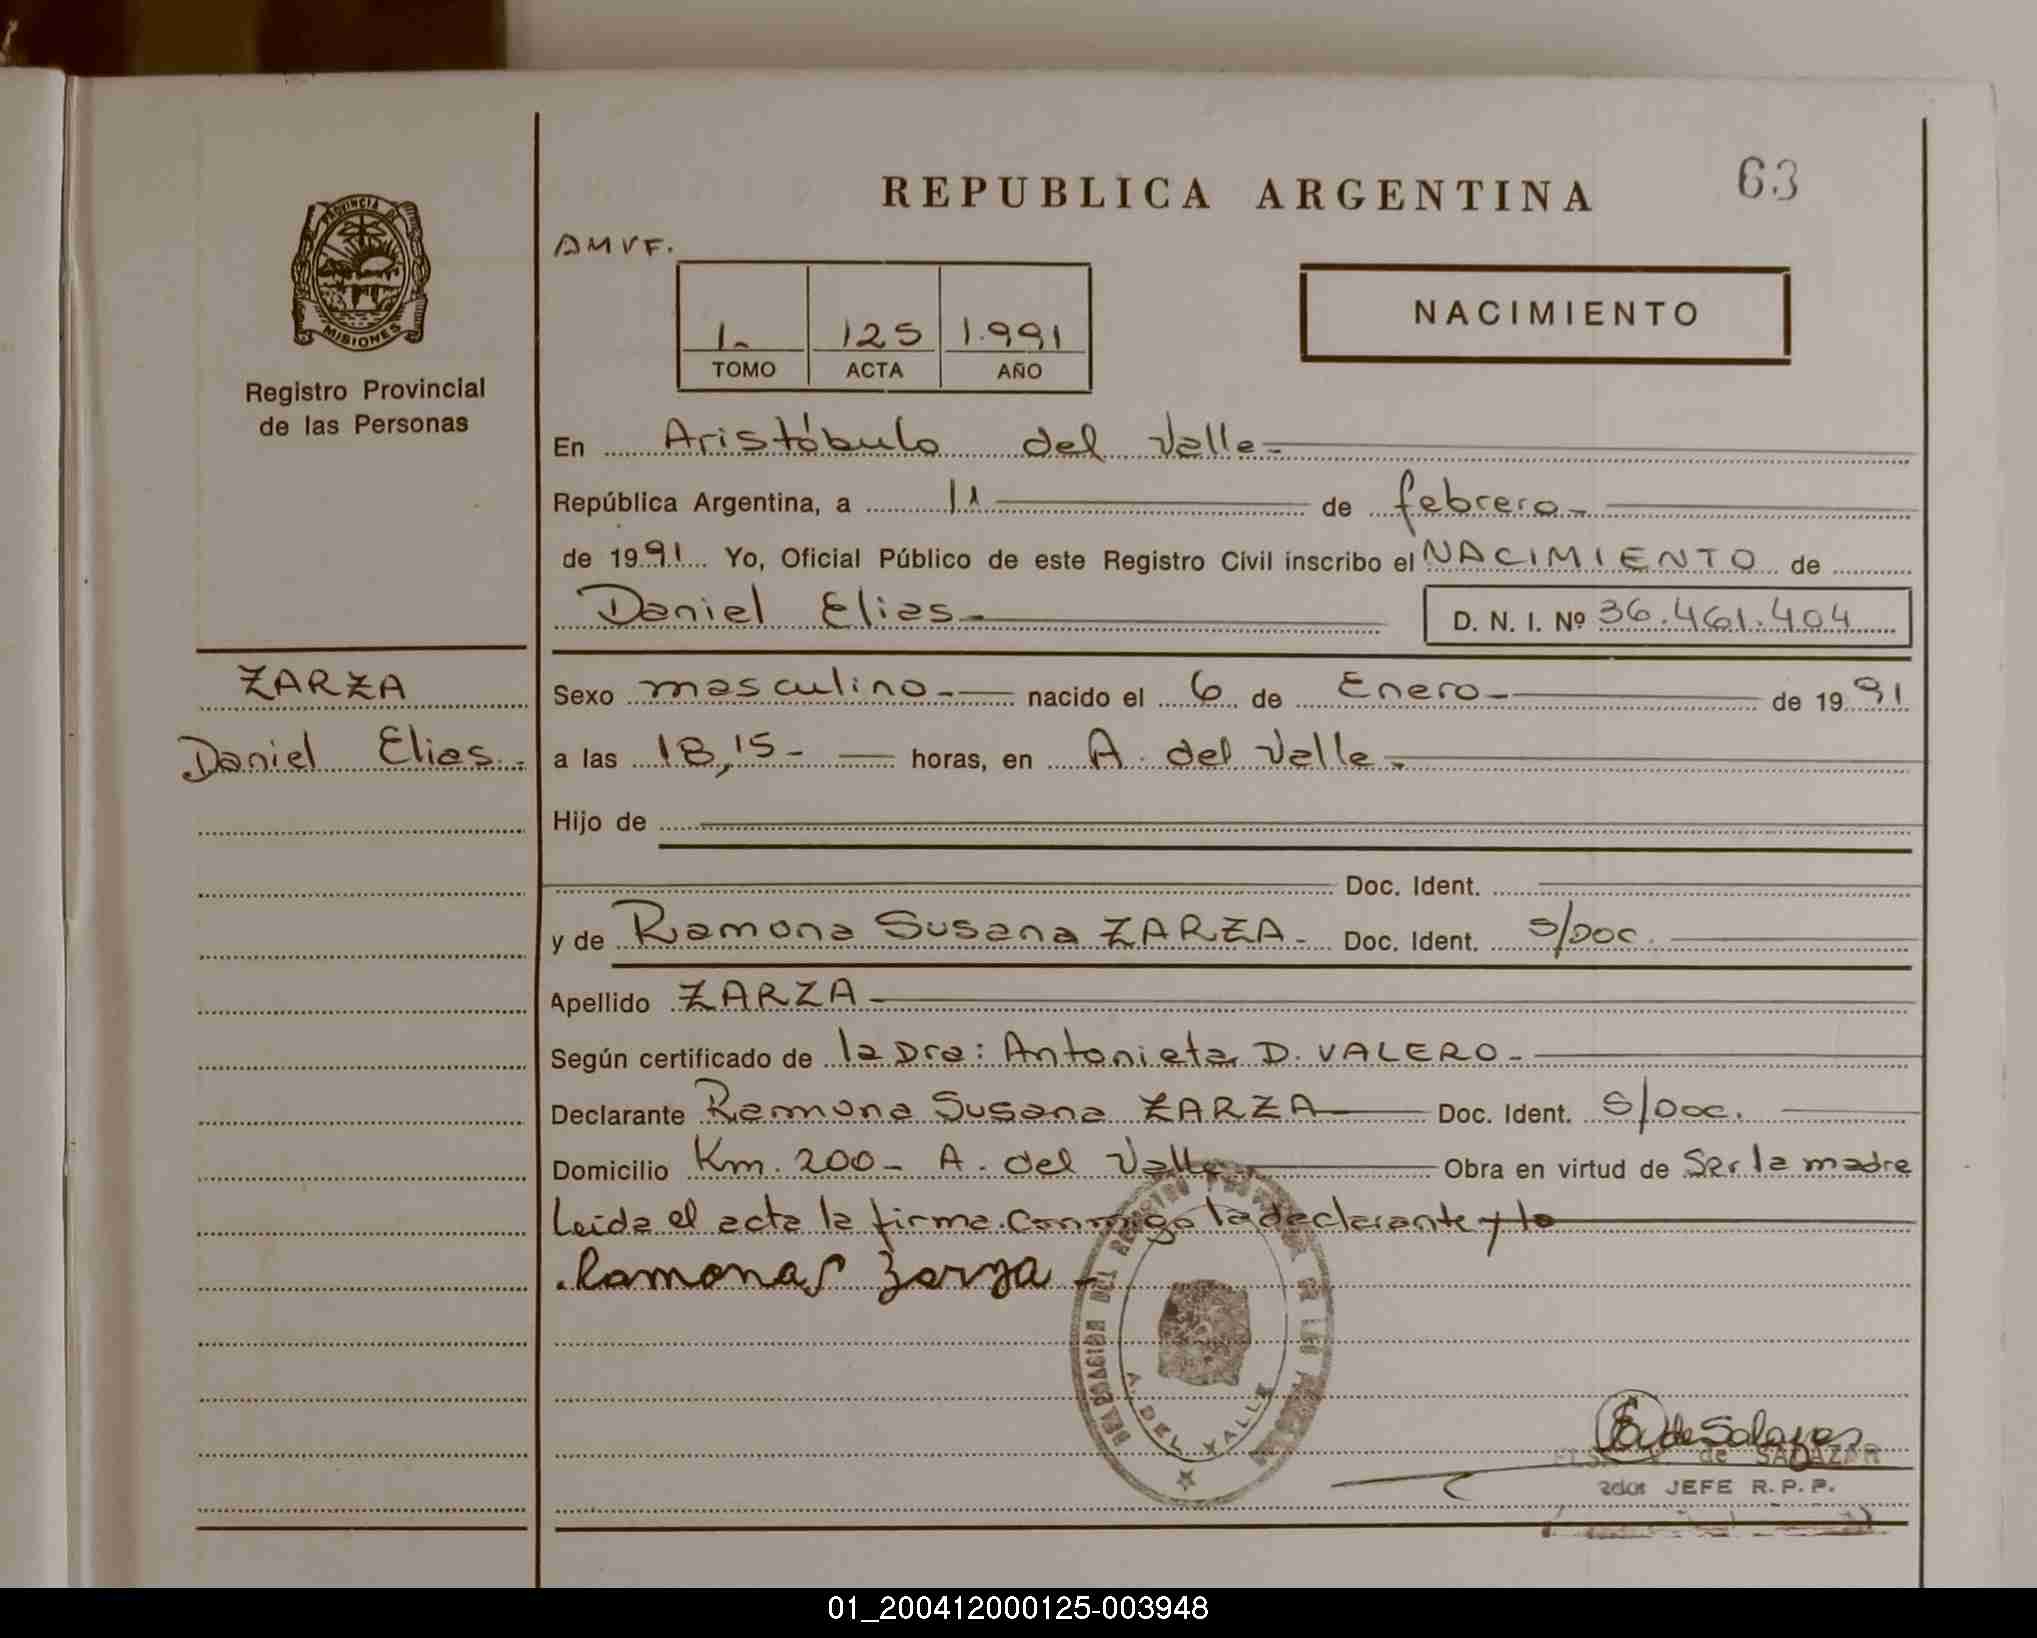 REPUBLICA ARGENTINA
63
PROVINCIA DE MISIONES
Registro Provincial
de las Personas
AMVF.
1- 125 1.991
TOMO ACTA AÑO
NACIMIENTO
En Aristóbulo del Valle-
República Argentina, a 11 de febrero-
de 1991 Yo, Oficial Público de este Registro Civil inscribo el NACIMIENTO de
Daniel Elias- D. N. I. Nº 36.461.404
ZARZA
Daniel Elias-
Sexo masculino- nacido el 6 de Enero- de 1991
a las 18,15- horas, en A. del Valle-
Hijo de
Doc. Ident.
y de Ramona Susana ZARZA- Doc. Ident. S/Doc.
Apellido ZARZA-
Según certificado de la Dra: Antonieta D. VALERO-
Declarante Ramona Susana ZARZA Doc. Ident. S/Doc.
Domicilio Km. 200- A. del Valle- Obra en virtud de Ser la madre
Leida el acta la firma conmigo la declarante y lo
Ramona S Zarza-
DELEGACION DEL REGISTRO PROVINCIAL DE LAS
A. DEL VALLE
de Salazar
de SALAZAR
JEFE R.P.P.
01_200412000125-003948